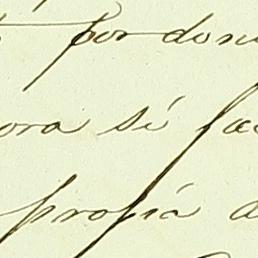 por don
ora si fa
propia a